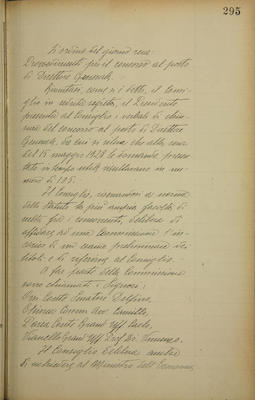 295
L'ordine del giorno reca:
Provvedimenti per il concorso al posto
di Direttore Generale.
Riunitosi, come si è detto, il Consi-
glio in seduta segreta, il Presidente
presenta al Consiglio i verbali di chiu-
sura del concorso al posto di Direttore
Generale, da cui si rileva che alle ore
del 15 maggio 1928 le domande presen-
tate in tempo utile risultavano in nu-
mero di 105.
Il Consiglio, a norma
dello Statuto la più ampia facoltà di
scelta fra i concorrenti, delibera di
affidare ad una Commissione l'in-
carico di un esame preliminare dei
titoli e di riferirne al Consiglio.
A far parte della Commissione
sono chiamati i Signori:
On. Conte Senatore Delfino,
Comm. Avv. Camillo,
Conte Grand'Uff. Carlo,
Vianello Grand'Uff. Prof. Dr.
Il Consiglio delibera anche
di al Ministero dell'Economia